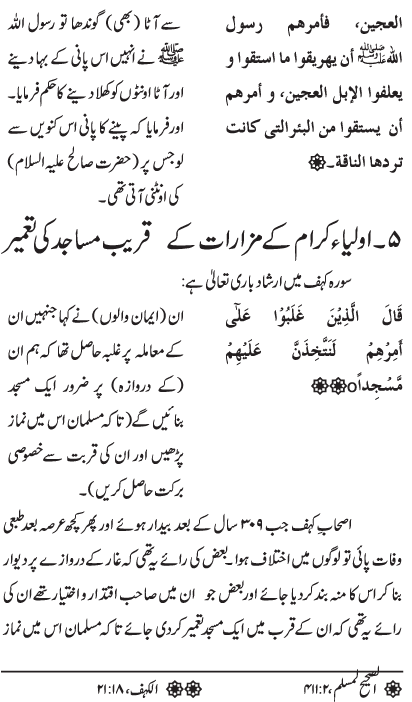 العجين، فأمرهم رسول
الله ﷺ أن يهريقوا ما استقوا و
يعلفوا الإبل العجين، و أمرهم
أن يستقوا من البئر التى كانت
تردها الناقة۔
سے آٹا (بھی) گوندھا تو رسول اللہ
ﷺ نے انہیں اس پانی کے بہا دینے
اور آٹا اونٹوں کو کھلا دینے کا حکم فرمایا۔
اور فرمایا کہ پینے کا پانی اس کنویں سے
لو جس پر (حضرت صالح علیہ السلام)
کی اونٹنی آتی تھی۔
۵۔ اولیاء کرام کے مزارات کے قریب مساجد کی تعمیر
سورہ کہف میں ارشاد باری تعالیٰ ہے:
قَالَ الَّذِيْنَ غَلَبُوْا عَلٰٓى
اَمْرِهِمْ لَنَتَّخِذَنَّ عَلَيْهِمْ
مَّسْجِداً٥
ان (ایمان والوں) نے کہا جنہیں ان
کے معاملہ پر غلبہ حاصل تھا کہ ہم ان
(کے دروازہ) پر ضرور ایک مسجد
بنائیں گے (تاکہ مسلمان اس میں نماز
پڑھیں اور ان کی قربت سے خصوصی
برکت حاصل کریں)۔
اصحاب کہف جب ۳۰۹ سال کے بعد بیدار ہوئے اور پھر کچھ عرصہ بعد طبعی
وفات پائی تو لوگوں میں اختلاف ہوا۔ بعض کی رائے یہ تھی کہ غار کے دروازے پر دیوار
بنا کر اس کا منہ بند کر دیا جائے اور بعض جو ان میں صاحب اقتدار و اختیار تھے ان کی
رائے یہ تھی کہ ان کے قرب میں ایک مسجد تعمیر کر دی جائے تاکہ مسلمان اس میں نماز
الصحیح لمسلم، ۲:۴۱۱
الکہف، ۱۸:۲۱